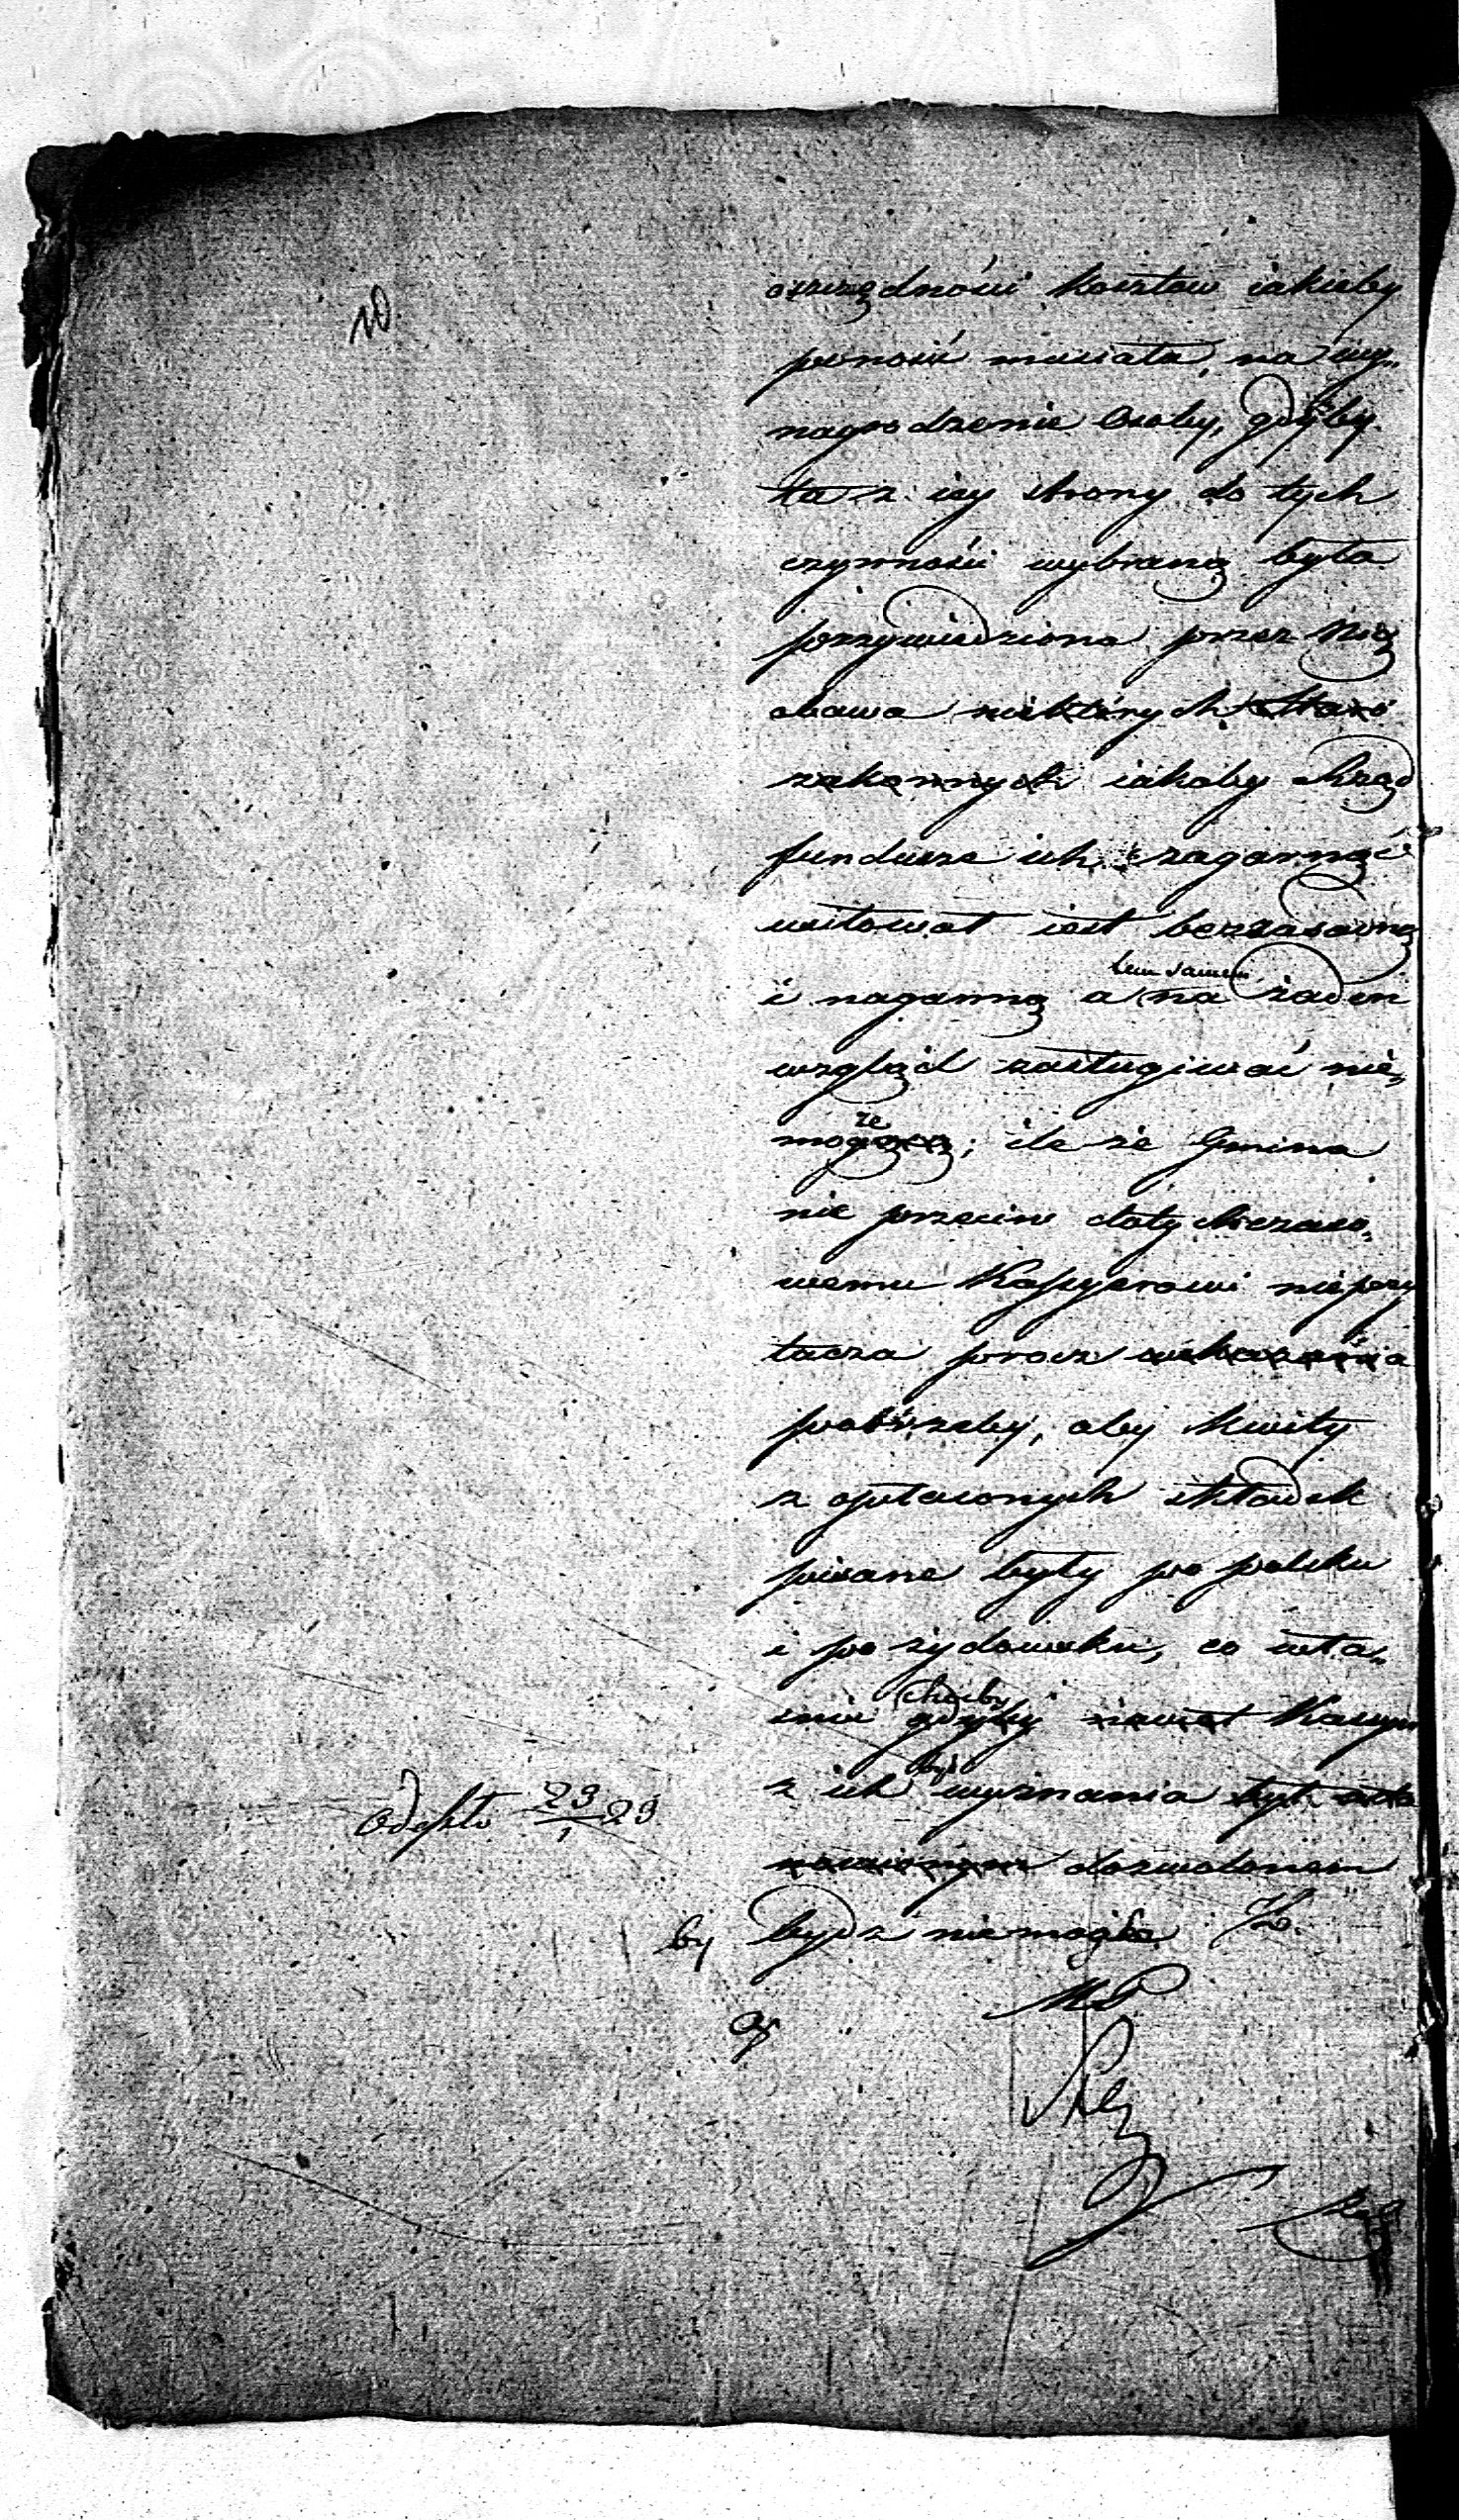 10.
oszczędności kosztów iakieby
ponosić musiała, na wy„
nagrodzenie Osoby, gdyby
ta z iey strony do tych
czynności wybraną była
przywiedziona przez Nią
obawa niektórych
zakonnych iakoby Rząd
fundusze ich zagarnąć
usiłował iest bezzasadną
i naganną a tem samem na żaden
wzgląd zasługiwać nie„
może; ile że Gmina
nic przeciw dotychczaso„
wemu Kassyerowi nieprzy
tacza prócz wskazania
potrzeby, aby kwity
z opłaconych składek
pisane były po polsku
i po żydowsku, co wła„
śnie choćby gdyby Kassyer
z ich wyznania był
dozwolonem
by bydź niemogło
Odeszło 23/1 29